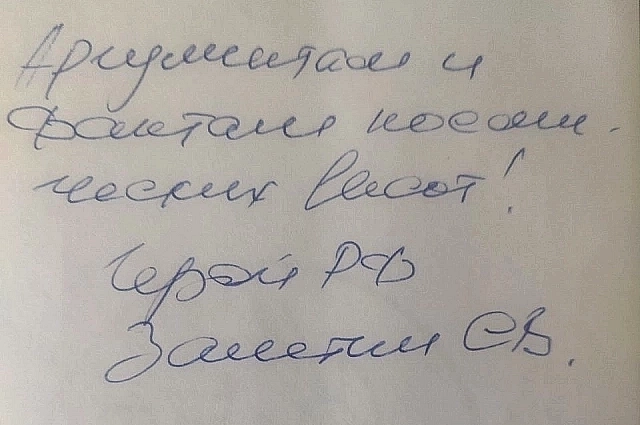 Аргументам и
Фактам косми-
ческих высот!
Герой РФ
Залетин СВ.